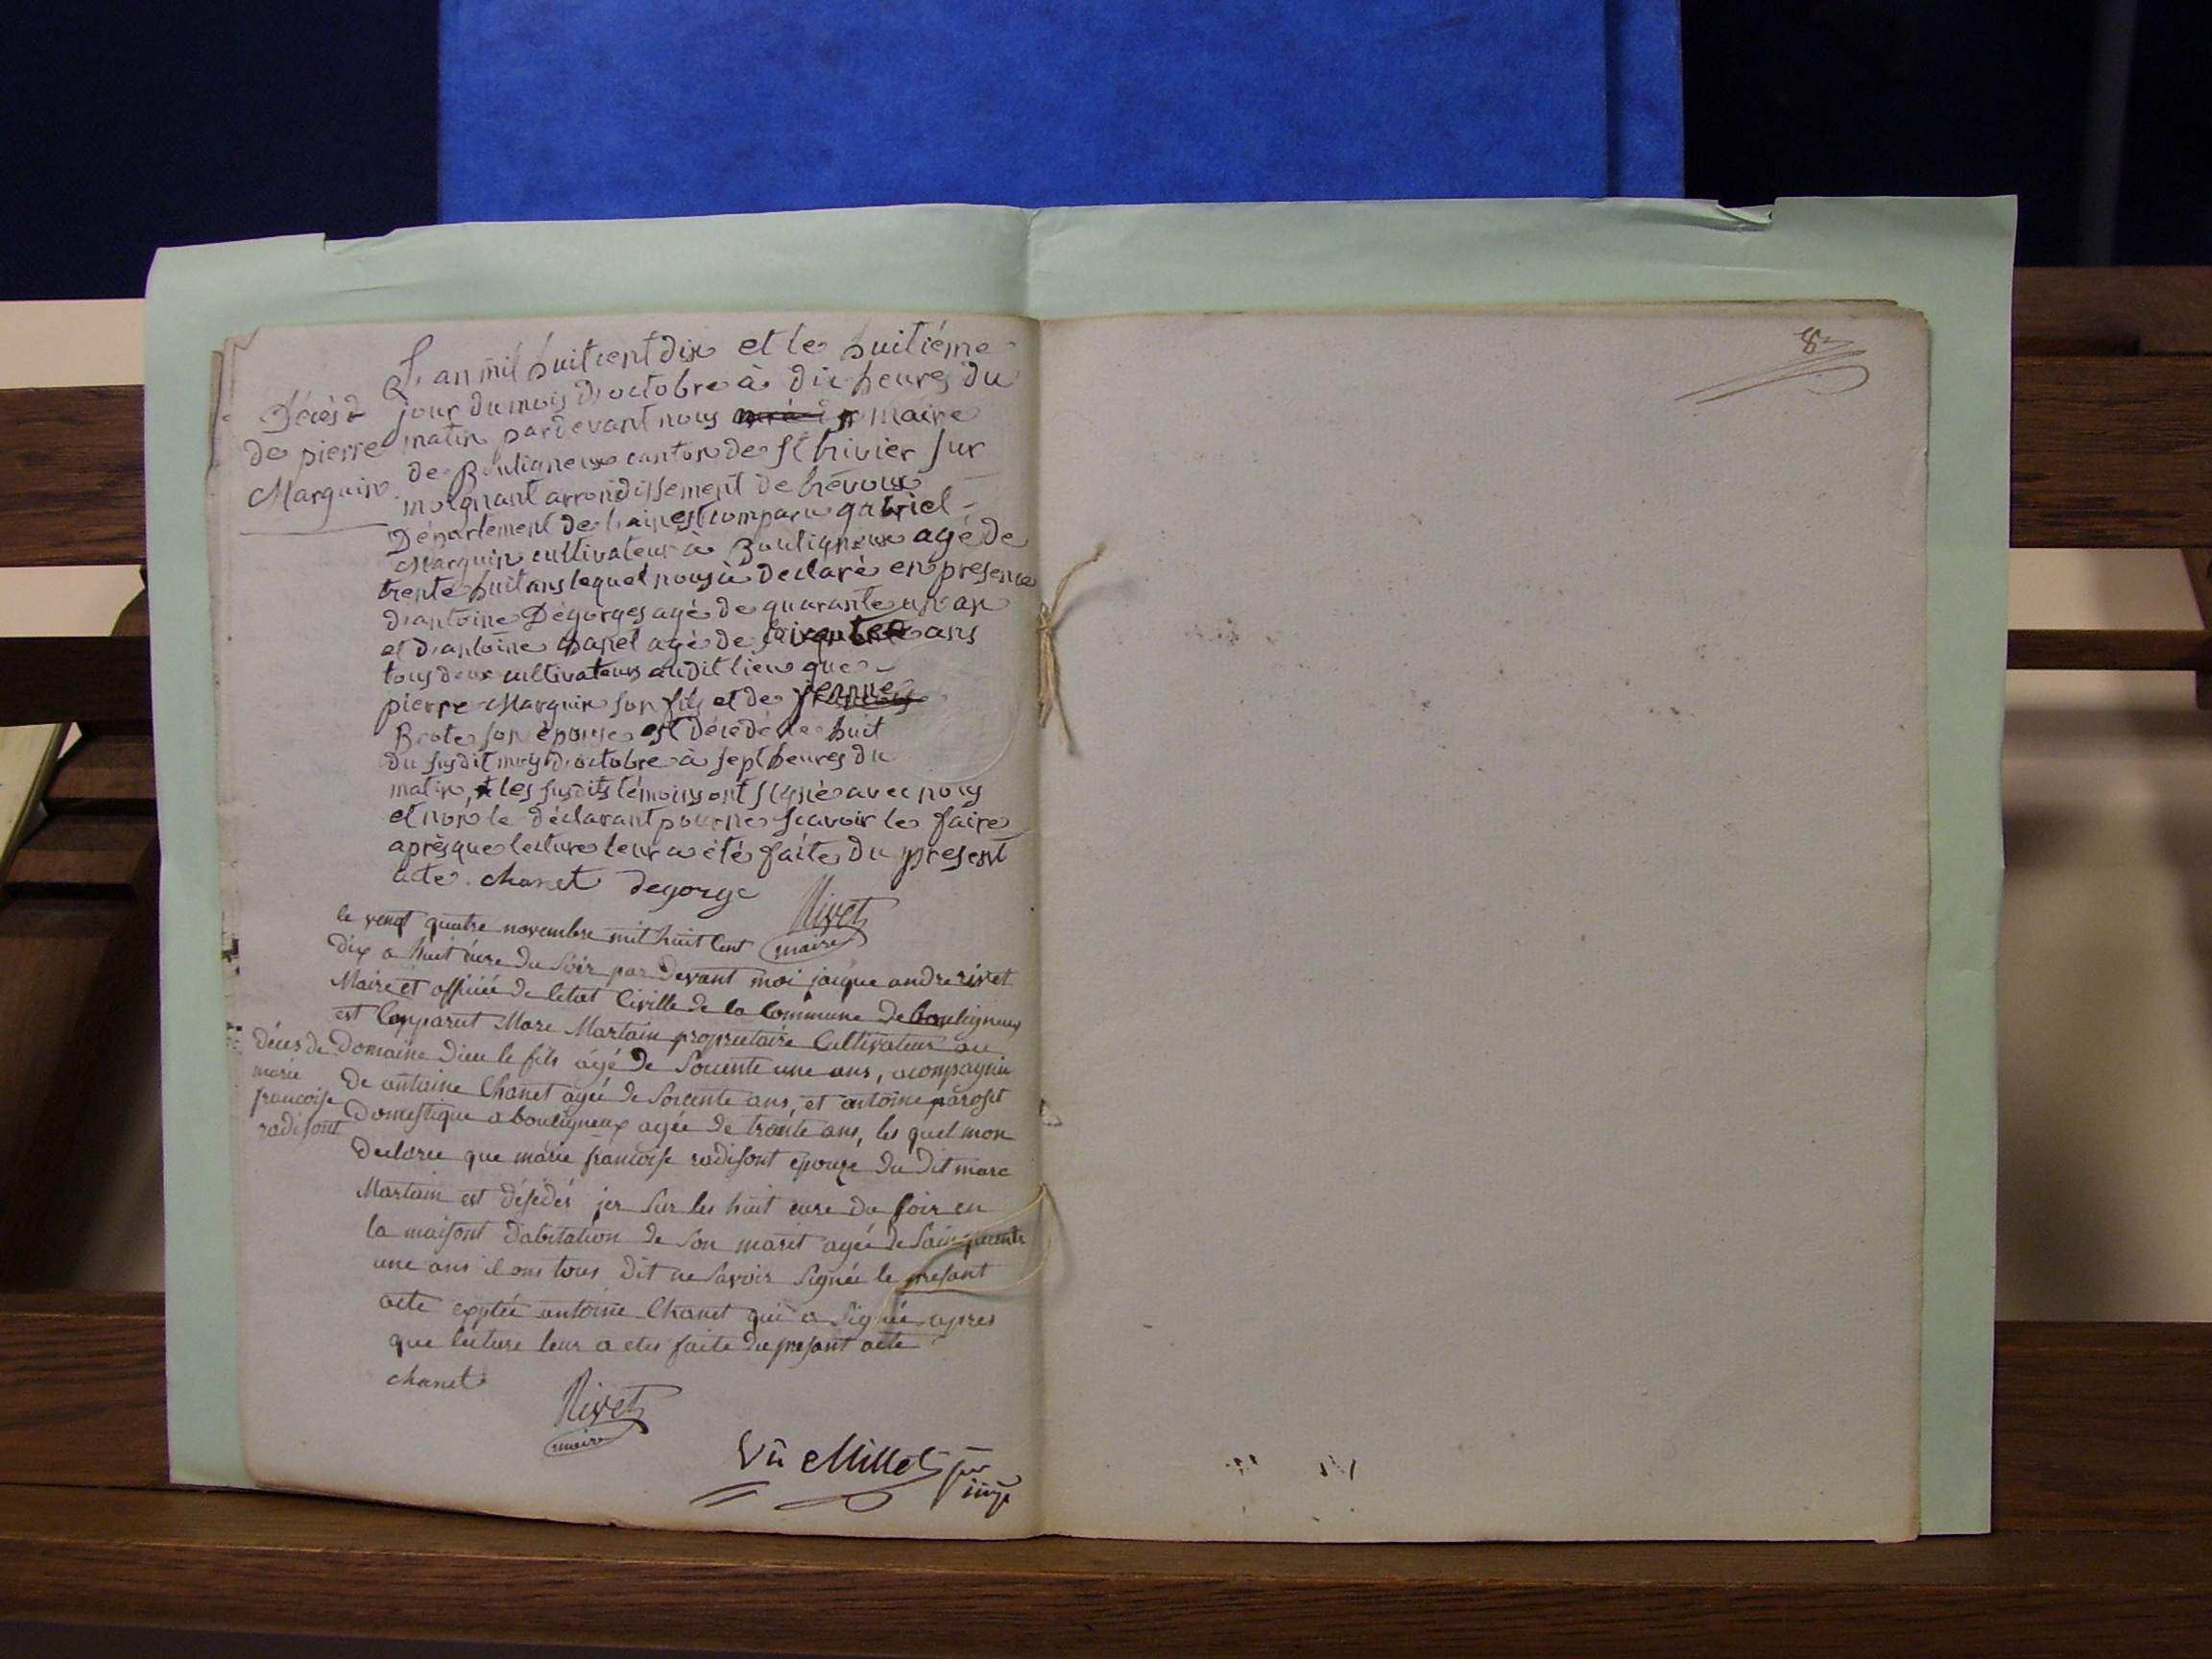 L'an mil huit cent dix et le huitiéme
jour du mois d'octobre à dix heures du
matin pardevant nous maire
de Bouligneux canton de St trivier sur
moignant arrondissement de trévoux
Département de l'ain est comparu gabriel
Marguin cultivateur à Bouligneux agé de
trente huit ans lequel nous à declaré en presence
d'antoine Dégorges agé de quarante un an
et d'antoine Chanet agé de ans
tous deux cultivateurs audit lieu que
pierre Marguin son fils et de
Brote son épouse est décédé le huit
du susdit mois d'octobre à sept heures du
matin, les susdits témoins ont signé avec nous
et non le déclarant pour ne scavoir le faire
aprèsque lecture leur a été faite du present
acte. chanet degorge
Rivet
maire
Décès
de pierre
Marguin
le vengt quatre novembre mil huit Cent
dix a huit eure du soir par devant moi jacque andre rivet
Maire et officié de letat Civille de la Commune de bouligneux
est Comparut Marc Martain proprietaire Cultivateur au
Domaine dieu le fils agé de Soicente une ans, acompagnié
de antoine Chanet agée de Soicente ans, et antoine paroset
Domestique a bouligneux agée de trante ans, les quel mon
declarée que marie francoise radisont epouze du dit marc
Martain est désédés ier sur les huit eure du soir en
la maisont d'abitation de son marit agée de Sainquante
une ans il ons tous dit ne savoir signée le presant
acte exptée antoine Chanet qui a Signée apres
que lecture leur a etes faite du presant acte
chanet
Rivet
maire
déces de
marie
francoise
radisont
Vû Millet
8